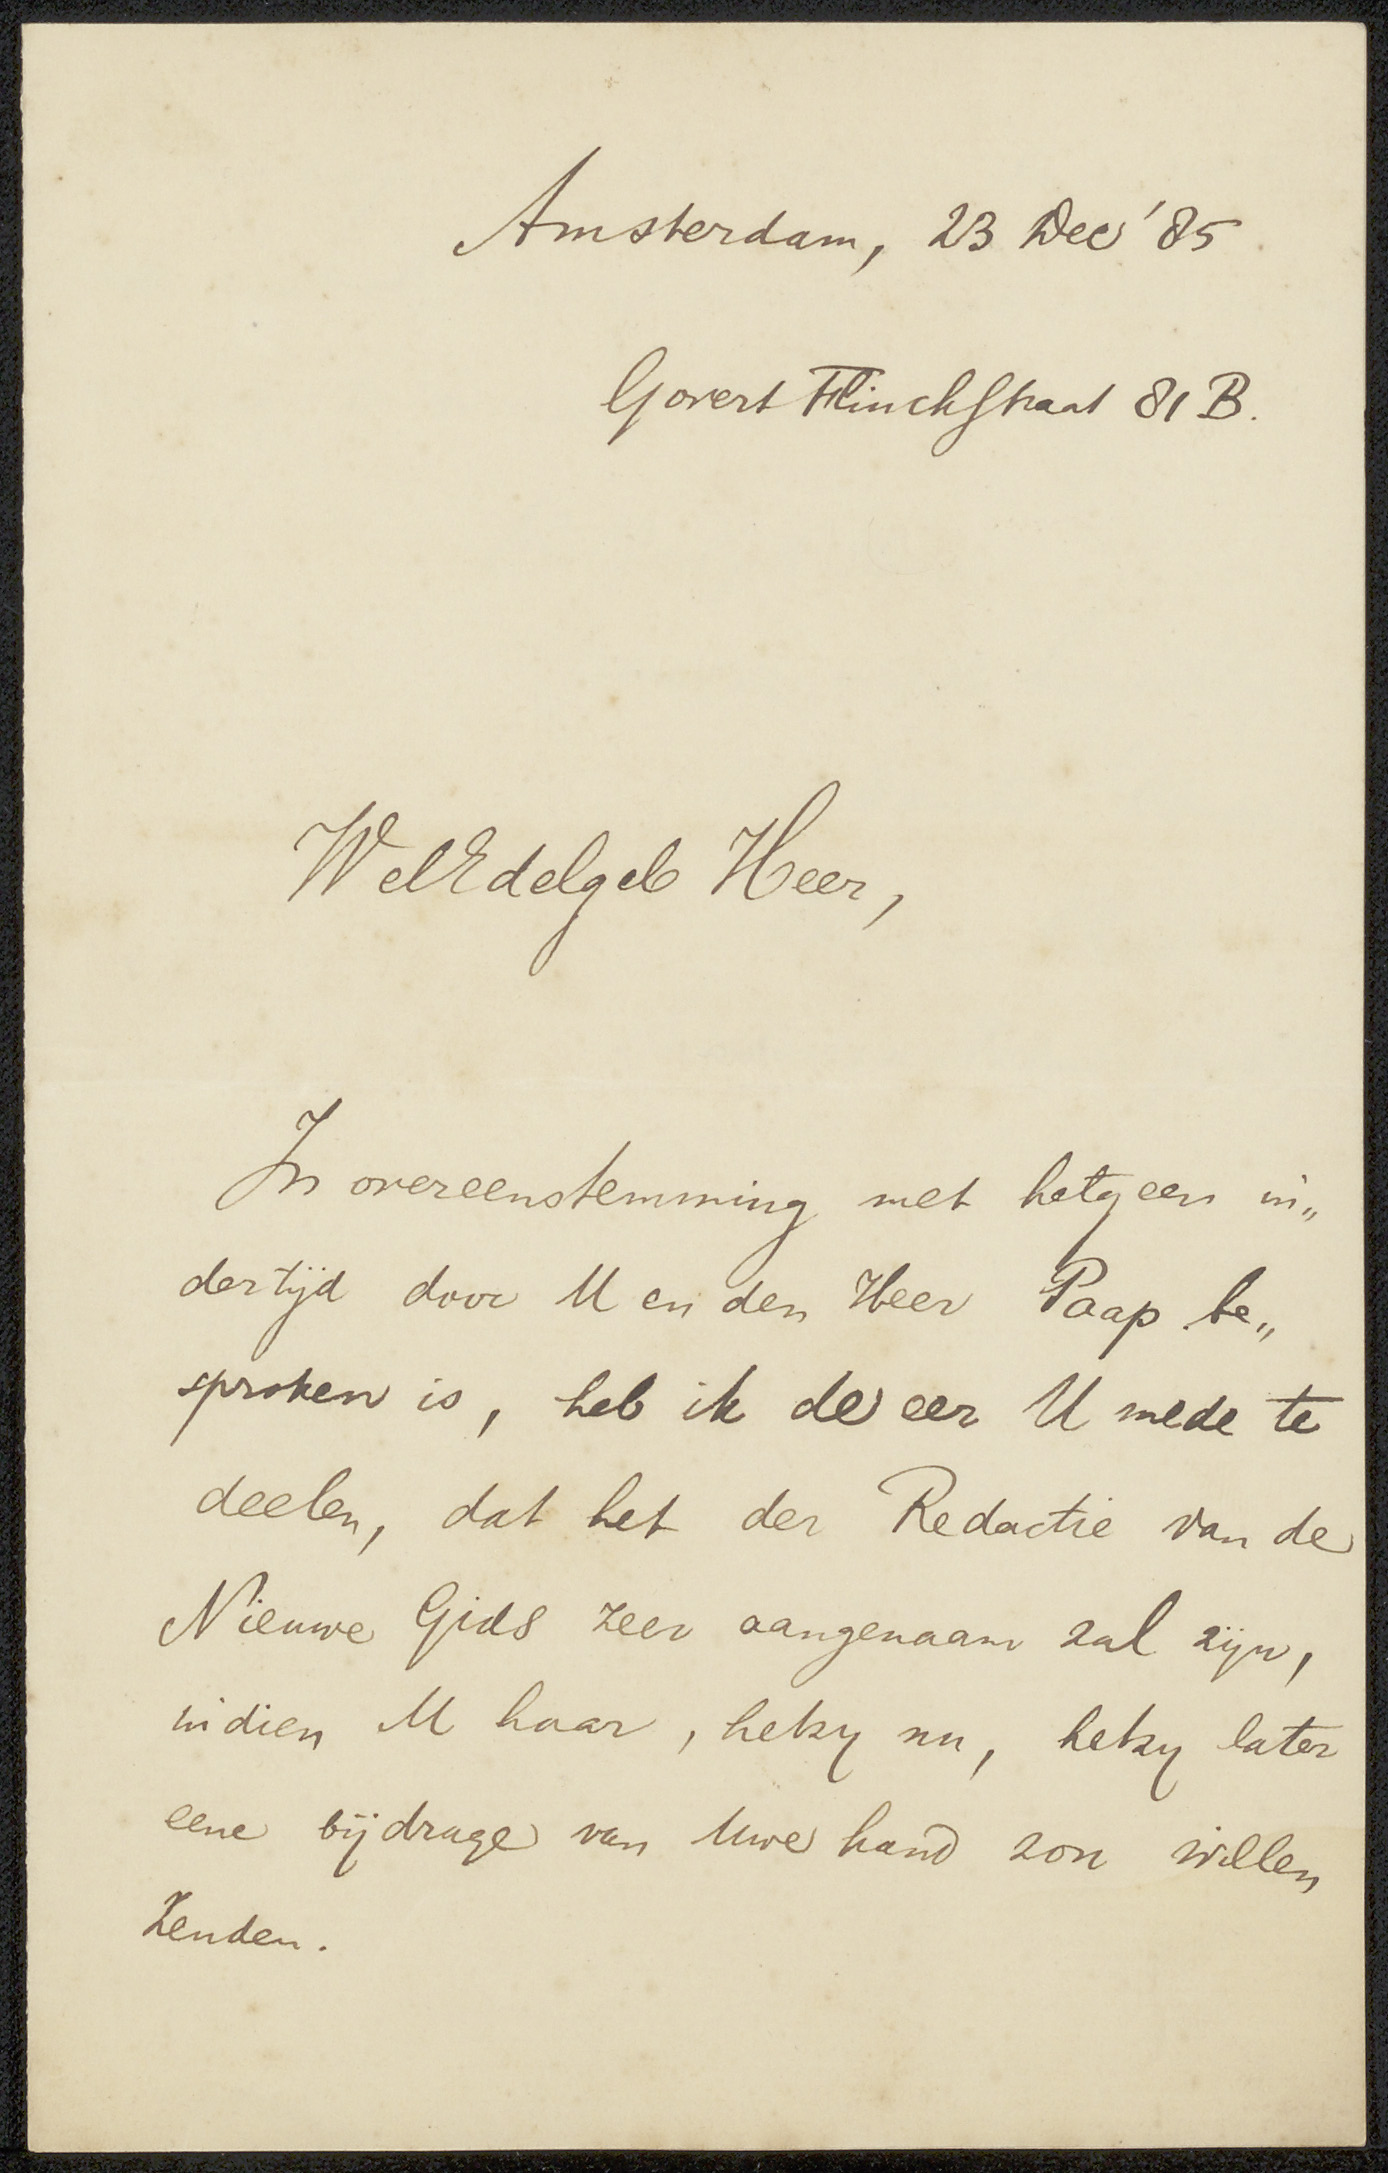 Amsterdam, 23 Dec '85
Govert Flinckstraat 81 B.
WelEdelgeb Heer,
In overeenstemming met hetgeen in„
dertijd door U en den Heer Paap be„
sproken is, heb ik de eer U mede te
deelen, dat het der Redactie van de
Nieuwe Gids zeer aangenaam zal zijn,
indien U haar, hetzij nu, hetzij later
eene bijdrage van Uwe hand zou willen
zenden.